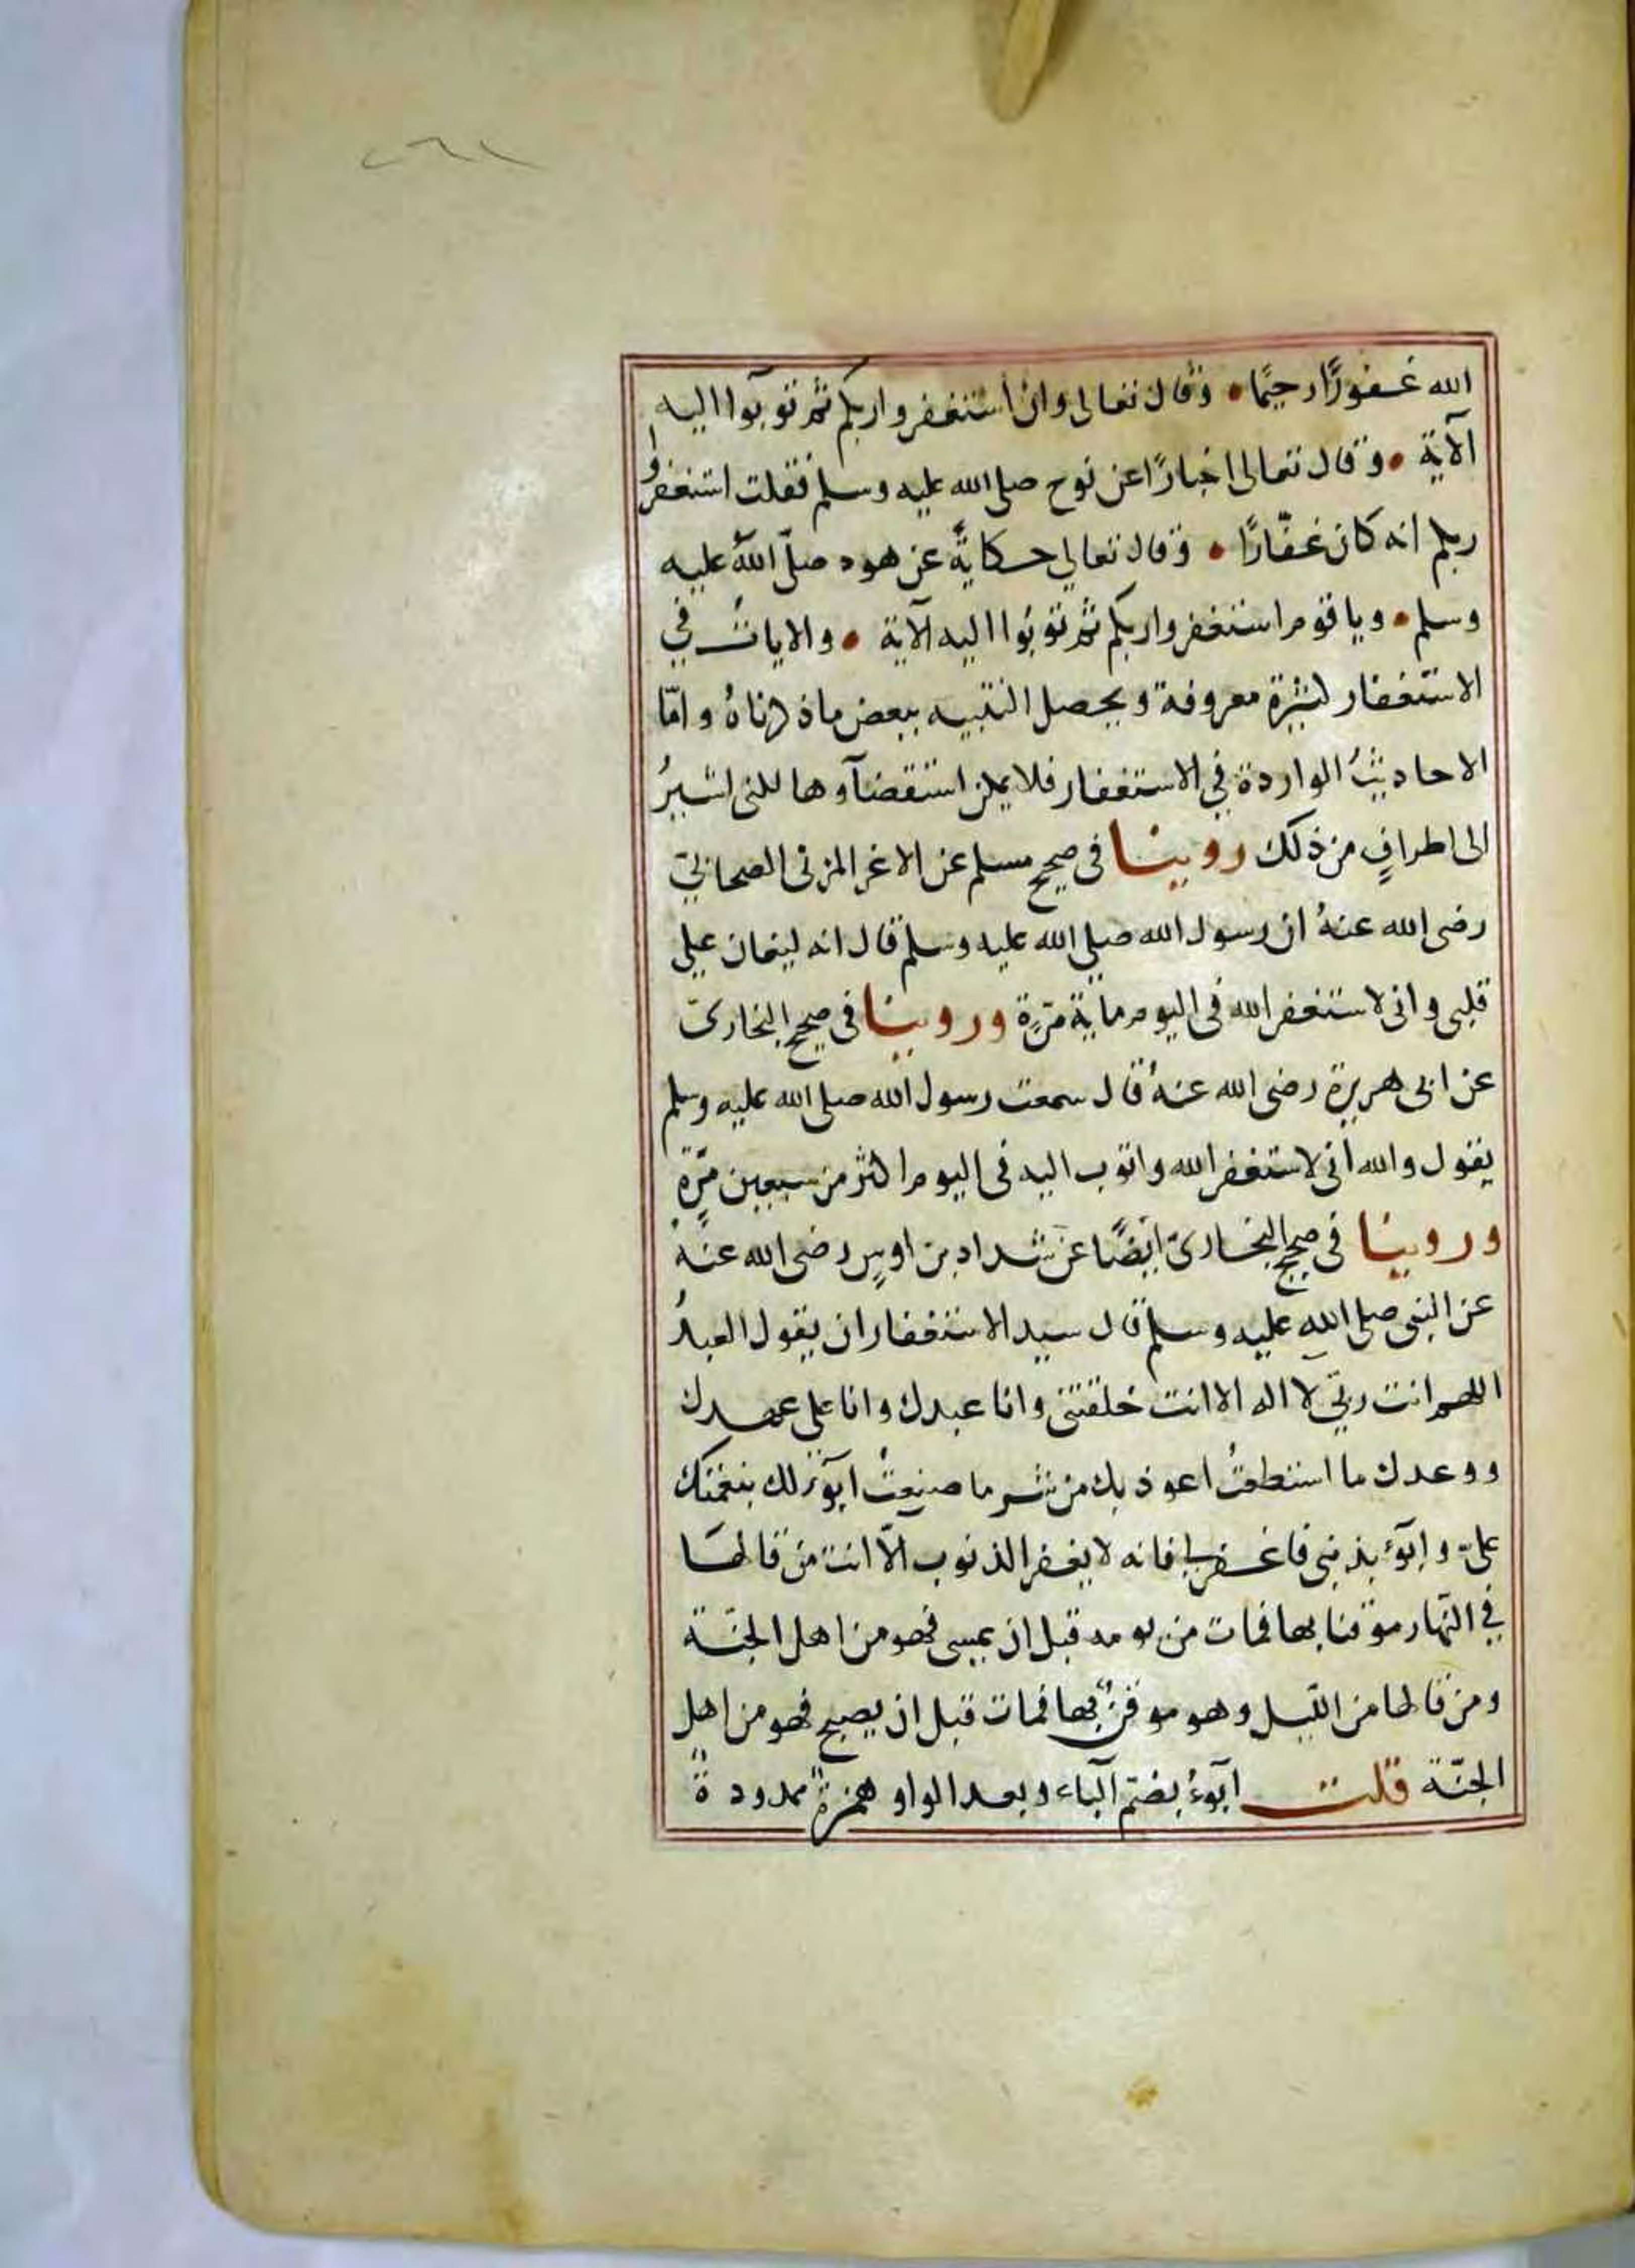 الله غفورًا رحيمًا • وقال تعالى وان استغفروا ربكم ثم توبوا اليه
الآية • وقال تعالى اخبارًا عن نوح صلى الله عليه وسلم فقلت استغفروا
ربكم انه كان غفّارًا • وقال تعالى حكايةً عن هود صلّى اللهُ عليه
وسلم • ويا قوم استغفروا ربكم ثم توبوا اليه الآية • والايات في
الاستغفار كثيرة معروفة ويحصل التنبيه ببعض ما ذكرناهُ وامّا
الاحاديثُ الواردة في الاستغفار فلا يمكن استقصآوها لكنى اشيرُ
الى اطرافٍ من ذلك روينا فى صحيح مسلم عن الاغر المزنى الصحابيّ
رضى الله عنهُ ان رسول الله صلى الله عليه وسلم قال انه ليغان على
قلبى وانى لاستغفر الله فى اليوم ماية مرّةٍ وروينا فى صحيح البخارىّ
عن ابى هريرة رضى الله عنهُ قال سمعت رسول الله صلى الله عليه وسلم
يقول والله انى لاستغفر الله واتوب اليه فى اليوم اكثر من سبعين مرّةٍ
وروينا فى صحيح البخارىّ ايضًا عن شداد بن اوسٍ رضى الله عنهُ
عن النبى صلى اللهِ عليه وسلم قال سيد الاستغفار ان يقول العبدُ
اللهم انت ربّي لا اله الا انت خلقتنى وانا عبدك وانا على عهدك
ووعدك ما استطعتُ اعوذ بك من شر ما صنعتُ ابوٓء لك بنعمتك
علىّ وابوٓء بذنبى فاغفر لى فانه لا يغفر الذنوب الّا انت من قالها
في النّهار موقنا بها فمات من يومه قبل ان يمسى فهو من اهل الجنّة
ومن قالها من اللّيل وهو موقنٌ بها فمات قبل ان يصبح فهو من اهل
الجنّة قلت ابوٓءُ بضمّ البآء وبعد الواو همزةٌ ممدودةٌ